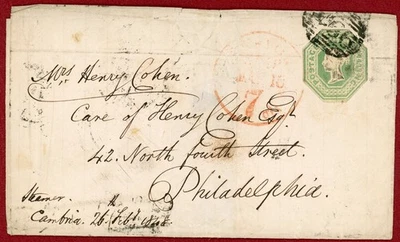 Mrs Henry Cohen.
Care of Henry Cohen Esqr
42. North Fourth Street.
Philadelphia.
Steamer.
Cambria. 26. Feby
POSTAGE